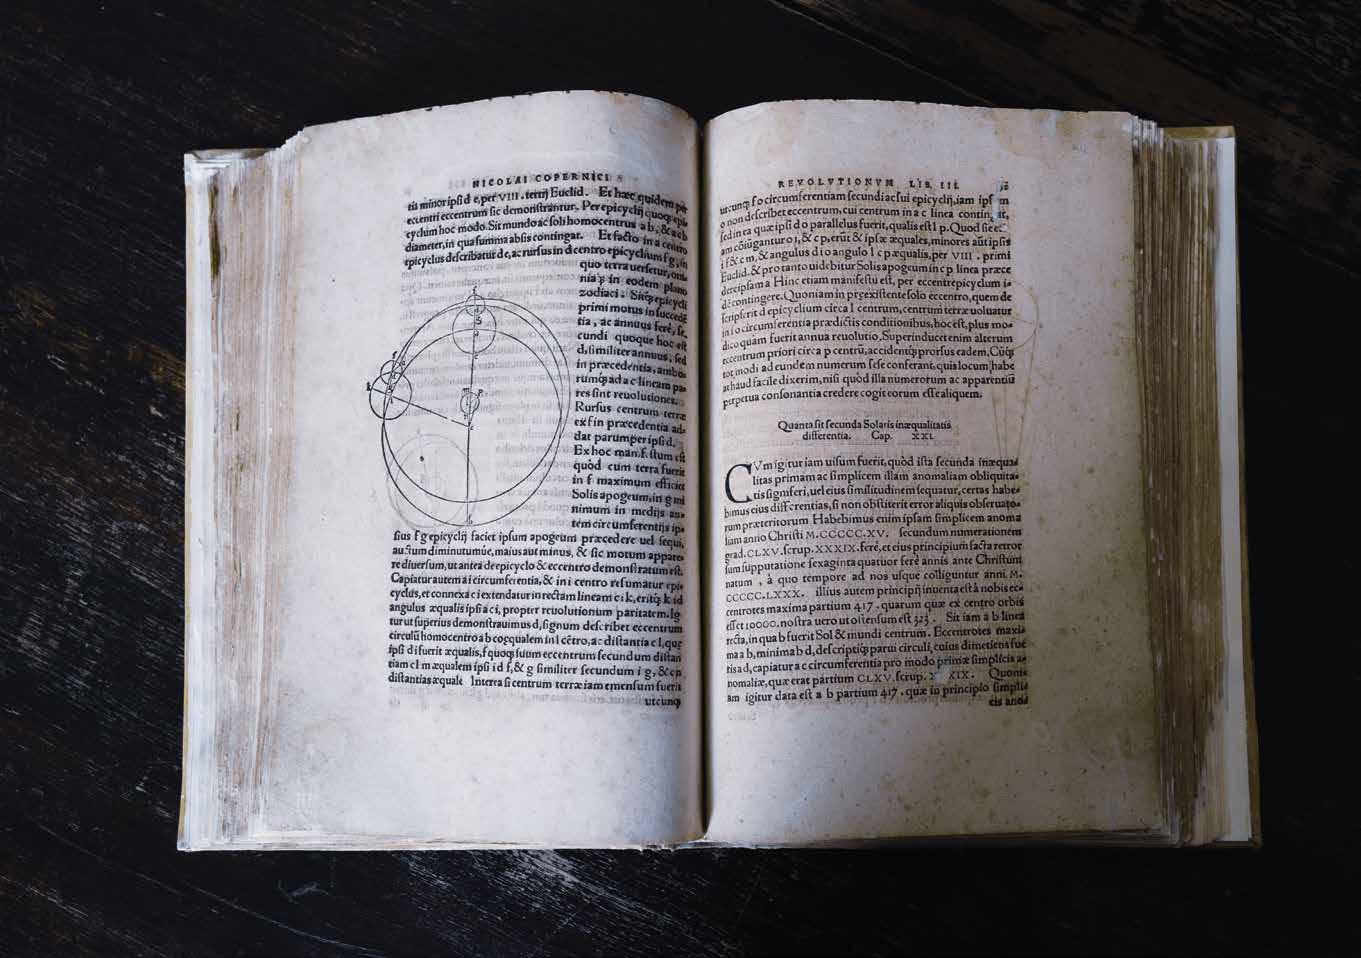 NICOLAI COPERNICI
tis minor ipsi d e, per VIII. tertij Euclid. Et hæc quidem per
eccentri eccentrum sic demonstrantur. Per epicyclij quoq; epi-
cyclum hoc modo. Sit mundo ac soli homocentrus a b, & a c b
diameter, in qua summa absis contingat. Et facto in a centro
epicyclus describatur d e, ac rursus in d centro epicyclium f g, in
quo terra versetur, om-
nia q; in eodem plano
zodiaci. Sitq; epicycli
primi motus in succedē
tia, ac annuus ferè, se-
cundi quoque hoc est
d, similiter annuus, sed
in præcedentia, ambo-
rumq; ad a c lineam pa-
res sint reuolutiones.
Rursus centrum terræ
ex f in præcedentia ad-
dat parumper ipsi d.
Ex hoc manifestum est
quòd cum terra fuerit
in f maximum efficiet
Solis apogeum, in g mi
nimum in medijs au-
tem circumferentijs ip-
sius f g epicyclij faciet ipsum apogeum præcedere uel sequi,
auctum diminutumúe, maius aut minus, & sic motum appare-
re diuersum, ut antea de epicyclo & eccentro demonstratum est.
Capiatur autem a i circumferentia, & in i centro resumatur epi-
cyclus, et connexa c i extendatur in rectam lineam c i k, eritq; k i d
angulus æqualis ipsi a c i, propter reuolutionum paritatem. Ig-
tur ut superius demonstrauimus d, signum describet eccentrum
circulū homocentro a b coæqualem in l cētro, ac distantia c l, quę
ipsi d i fuerit æqualis, f quoq; suum eccentrum secundum distan
tiam c l m æqualem ipsi i d f, & g similiter secundum i g, & c n
distantias æquale Interea si centrum terræ iam emensum fuerit
utcunq;
REVOLVTIONVM LIB. III.
utcunq; f o circumferentiam secundi ac sui epicyclij, iam ipsum
o non describet eccentrum, cui centrum in a c linea contingat,
sed in ea quæ ipsi d o parallelus fuerit, qualis est l p. Quod si et
am cōiūgantur o i, & c p, erūt & ipsæ æquales, minores aūt ipsis
i f & c m, & angulus d i o angulo l c p æqualis, per VIII. primi
Euclid. & pro tanto uidebitur Solis apogeum in c p linea præce
dere ipsam a Hinc etiam manifestu est, per eccentrepicyclum i-
dē contingere. Quoniam in præexistente solo eccentro, quem de
scripserit d epicyclium circa l centrum, centrum terræ uoluatur
in f o circumferentia prædictis conditionibus, hoc est, plus mo-
dico quam fuerit annua reuolutio. Superinducet enim alterum
eccentrum priori circa p centrū, accidentq; prorsus eadem. Cūq;
tot modi ad eundem numerum sese conferant, quis locum habe
at haud facile dixerim, nisi quòd illa numerorum ac apparentiū
perpetua consonantia credere cogit eorum esse aliquem.
Quanta sit secunda Solaris inæqualitatis
differentia. Cap. XXI.
CVm igitur iam uisum fuerit, quòd ista secunda inæqua
litas primam ac simplicem illam anomaliam obliquita-
tis signiferi, uel eius similitudinem sequatur, certas habe-
bimus eius differentias, si non obstiterit error aliquis obseruato-
rum præteritorum Habebimus enim ipsam simplicem anoma
liam anno Christi M.CCCCC.XV. secundum numerationem
grad. CLXV. scrup. XXXIX. ferè, et eius principium facta retror
sum supputatione sexaginta quatuor ferè annis ante Christum
natum, à quo tempore ad nos usque colliguntur anni M.
CCCCC.LXXX. illius autem principij inuenta est à nobis ec-
centrotes maxima partium 417. quarum quæ ex centro orbis
esset 10000. nostra uero ut ostensum est 323. Sit iam a b linea
recta, in qua b fuerit Sol & mundi centrum. Eccentrotes maxi-
ma a b, minima b d, descriptiq; parui circuli, cuius dimetiens fue
rit a d, capiatur a c circumferentia pro modo primæ simplicis a-
nomaliæ, quæ erat partium CLXV. scrup. XXXIX. Quoni-
am igitur data est a b partium 417. quæ in principio simpli
cis ano-